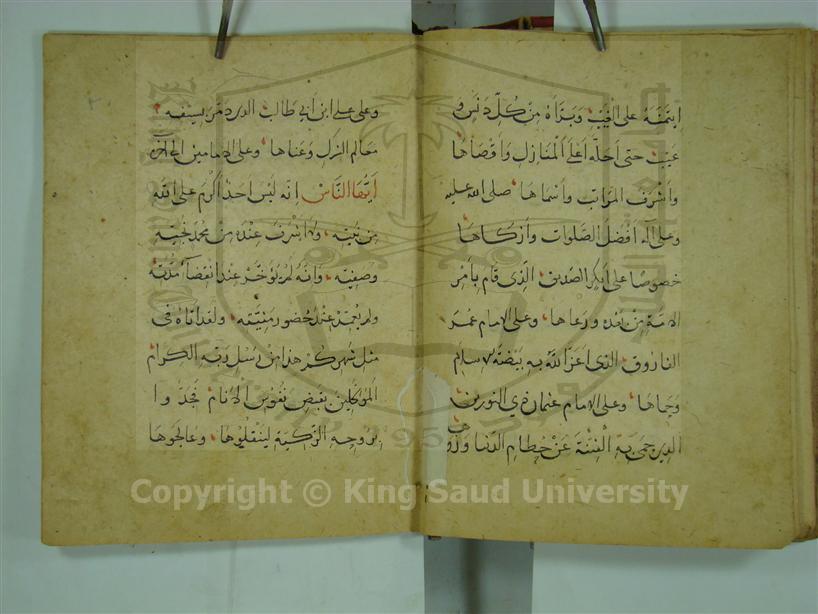 ايتمنه على الغيب وبرأه من كل دنس و
عيب حتى احله أعلى المنازل وأقصاها
وأشرف المراتب وأسماها صلى الله عليه
وعلى آله أفضل الصلوات وأزكاها
خصوصا على أبي بكر الصديق الذي قام بأمر
الامة من بعده ورعاها وعلى الامام عمر
الفاروق الذي اعز الله به بيضة الاسلام
وحماها وعلى الامام عثمان ذي النورين
الذي حمى به الفتنة عن حطام الدنيا
وعلى علي ابن أبي طالب الذي دمر بسيفه
معالم الشرك وعناها وعلى الامامين الى آخره
أيها الناس إنه ليس احد أكرم على الله
من نبيه ولا اشرف عنده من محمد نجيه
وصفيه وانه لم يؤخر عند انقضاء مدته
ولم يعمر عند حضور منيته ولقد اتاه في
مثل شهركم هذا من رسل ربه الكرام
الموكلين بقبض نفوس الانام فجذوا
بروحه الزكية لينقلوها وعالجوها
Copyright © King Saud University
1957